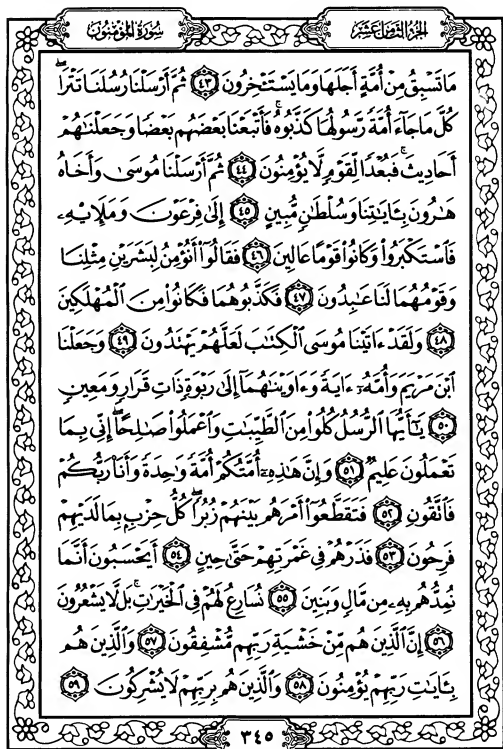 سُورَةُ المُؤْمِنُونَ
الجُزْءُ الثَّامِنَ عَشَرَ
مَا تَسْبِقُ مِنْ أُمَّةٍ أَجَلَهَا وَمَا يَسْتَـْٔخِرُونَ ٤٣ ثُمَّ أَرْسَلْنَا رُسُلَنَا تَتْرَا ۖ
كُلَّ مَا جَآءَ أُمَّةً رَّسُولُهَا كَذَّبُوهُ ۚ فَأَتْبَعْنَا بَعْضَهُم بَعْضًا وَجَعَلْنَٰهُمْ
أَحَادِيثَ ۚ فَبُعْدًا لِّقَوْمٍ لَّا يُؤْمِنُونَ ٤٤ ثُمَّ أَرْسَلْنَا مُوسَىٰ وَأَخَاهُ
هَٰرُونَ بِـَٔايَٰتِنَا وَسُلْطَٰنٍ مُّبِينٍ ٤٥ إِلَىٰ فِرْعَوْنَ وَمَلَإِي۟هِۦ
فَٱسْتَكْبَرُوا۟ وَكَانُوا۟ قَوْمًا عَالِينَ ٤٦ فَقَالُوٓا۟ أَنُؤْمِنُ لِبَشَرَيْنِ مِثْلِنَا
وَقَوْمُهُمَا لَنَا عَٰبِدُونَ ٤٧ فَكَذَّبُوهُمَا فَكَانُوا۟ مِنَ ٱلْمُهْلَكِينَ
٤٨ وَلَقَدْ ءَاتَيْنَا مُوسَى ٱلْكِتَٰبَ لَعَلَّهُمْ يَهْتَدُونَ ٤٩ وَجَعَلْنَا
ٱبْنَ مَرْيَمَ وَأُمَّهُۥٓ ءَايَةً وَءَاوَيْنَٰهُمَآ إِلَىٰ رَبْوَةٍ ذَاتِ قَرَارٍ وَمَعِينٍ
٥٠ يَٰٓأَيُّهَا ٱلرُّسُلُ كُلُوا۟ مِنَ ٱلطَّيِّبَٰتِ وَٱعْمَلُوا۟ صَٰلِحًا ۖ إِنِّى بِمَا
تَعْمَلُونَ عَلِيمٌ ٥١ وَإِنَّ هَٰذِهِۦٓ أُمَّتُكُمْ أُمَّةً وَٰحِدَةً وَأَنَا۠ رَبُّكُمْ
فَٱتَّقُونِ ٥٢ فَتَقَطَّعُوٓا۟ أَمْرَهُم بَيْنَهُمْ زُبُرًا ۖ كُلُّ حِزْبٍۭ بِمَا لَدَيْهِمْ
فَرِحُونَ ٥٣ فَذَرْهُمْ فِى غَمْرَتِهِمْ حَتَّىٰ حِينٍ ٥٤ أَيَحْسَبُونَ أَنَّمَا
نُمِدُّهُم بِهِۦ مِن مَّالٍ وَبَنِينَ ٥٥ نُسَارِعُ لَهُمْ فِى ٱلْخَيْرَٰتِ ۚ بَل لَّا يَشْعُرُونَ
٥٦ إِنَّ ٱلَّذِينَ هُم مِّنْ خَشْيَةِ رَبِّهِم مُّشْفِقُونَ ٥٧ وَٱلَّذِينَ هُم
بِـَٔايَٰتِ رَبِّهِمْ يُؤْمِنُونَ ٥٨ وَٱلَّذِينَ هُم بِرَبِّهِمْ لَا يُشْرِكُونَ ٥٩
٣٤٥